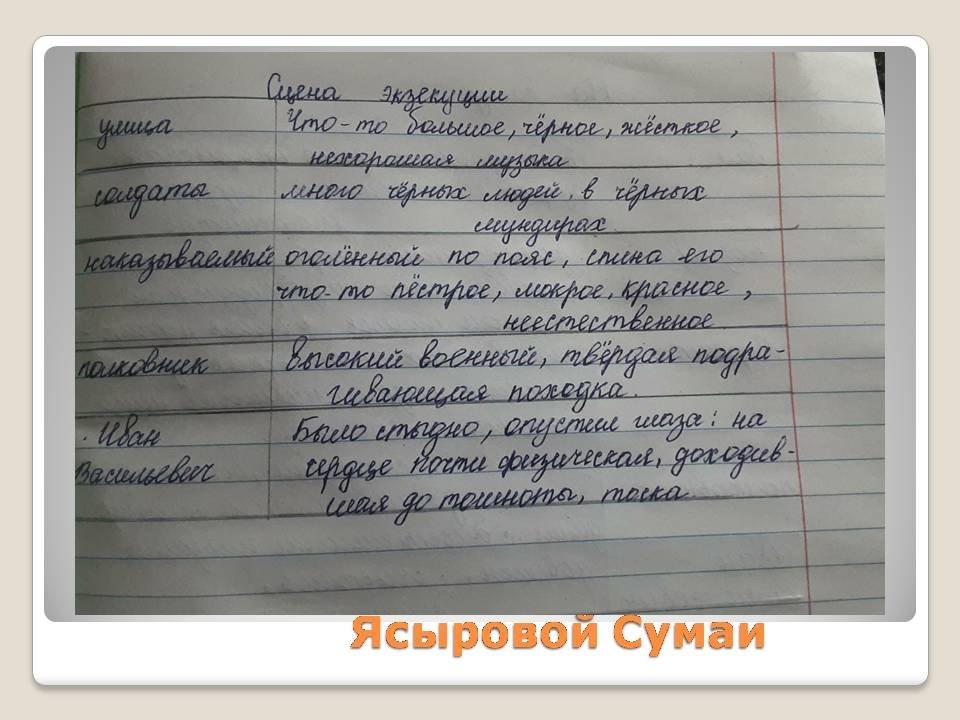 Сцена экзекуции
улица Что-то большое, чёрное, жёсткое,
нехорошая музыка
солдаты много чёрных людей в чёрных
мундирах
наказываемый оголённый по пояс, спина его
что-то пёстрое, мокрое, красное,
неестественное
полковник Высокий военный, твёрдая подра-
гивающая походка.
Иван Было стыдно, опустил глаза: на
Васильевич сердце почти физическая, доходив-
шая до тошноты, тоска
Ясыровой Сумаи